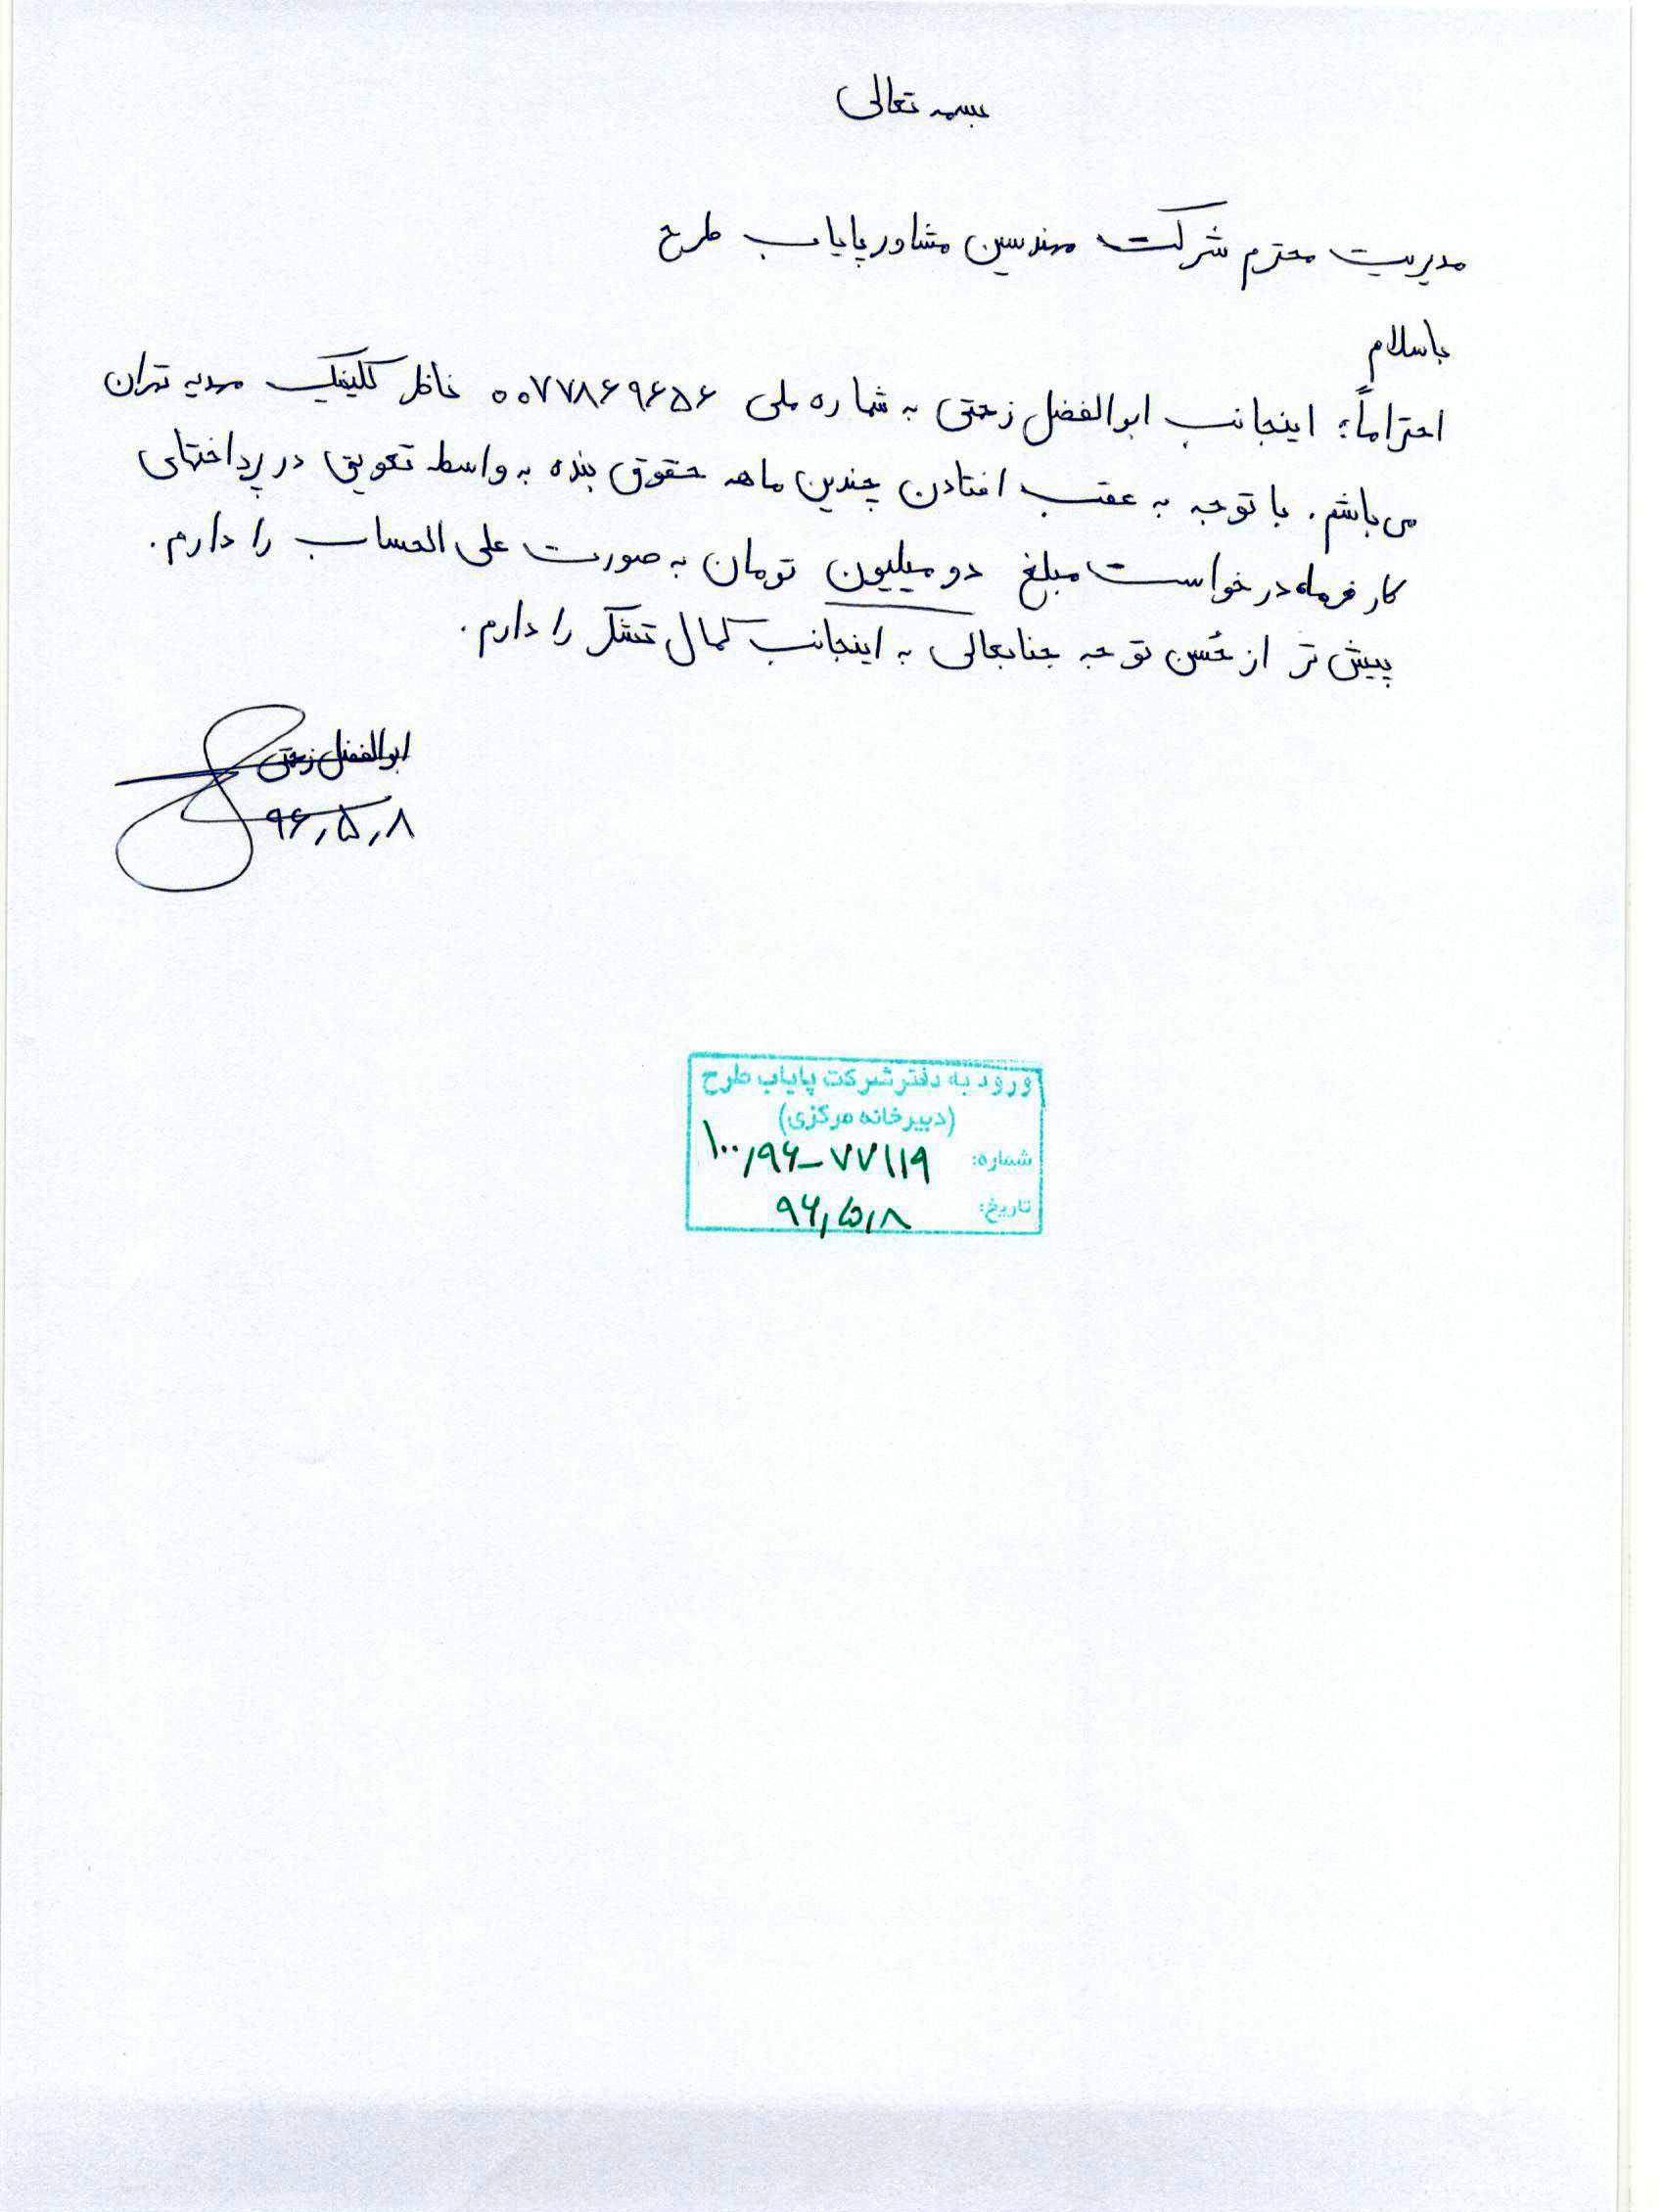 بسمه تعالی
مدیریت محترم شرکت مهندسین مشاور پایاب طرح
باسلام
احتراماً؛ اینجانب ابوالفضل زحمتی به شماره ملی ۰۰۷۷۸۶۹۶۵۶ ناظر کلینیک مهدیه تهران
می‌باشم. با توجه به عقب افتادن چندین ماهه حقوق بنده به واسطه تعویق در پرداختهای
کارفرما، درخواست مبلغ دو میلیون تومان به صورت علی الحساب را دارم.
پیش‌تر از حُسن توجه جنابعالی به اینجانب کمال تشکر را دارم.
ابوالفضل زحمتی
۹۶,۵,۸
ورود به دفتر شرکت پایاب طرح
(دبیرخانه مرکزی)
شماره: ۱۰۰,۹۶-۷۷۱۱۹
تاریخ: ۹۶,۵,۸